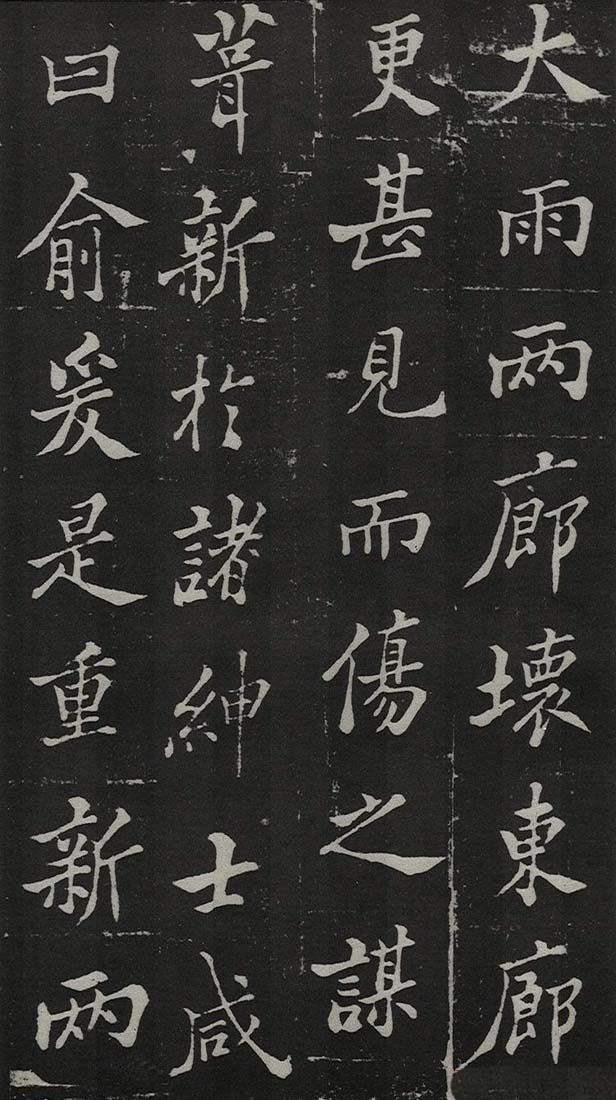 大雨两廊壞東廊
更甚見而傷之謀
葺新於諸紳士咸
曰俞爰是重新两